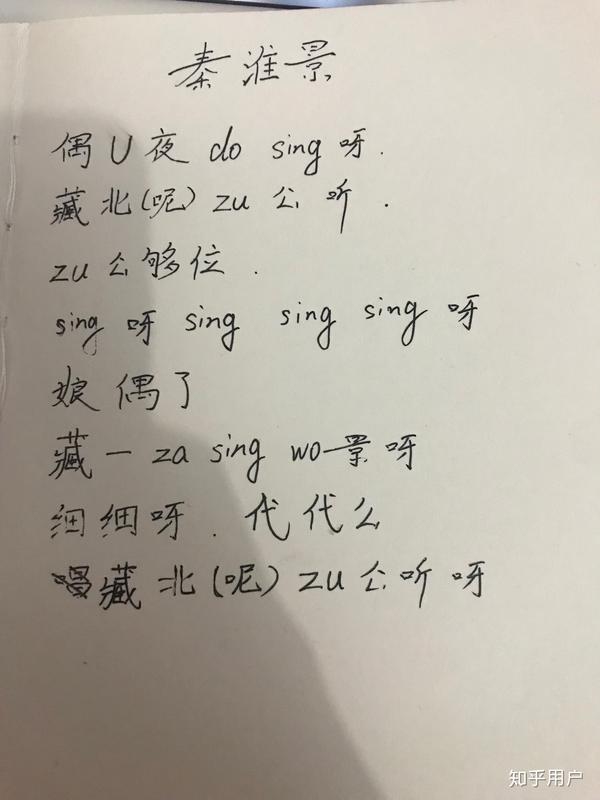 秦淮景
偶U夜 do sing 呀.
藏北(呢) zu 公 听.
zu 公够位.
sing 呀 sing sing sing 呀
娘偶了
藏一 za sing wo 景呀
细细呀. 代代么
唱藏北(呢) zu 公听呀
知乎用户